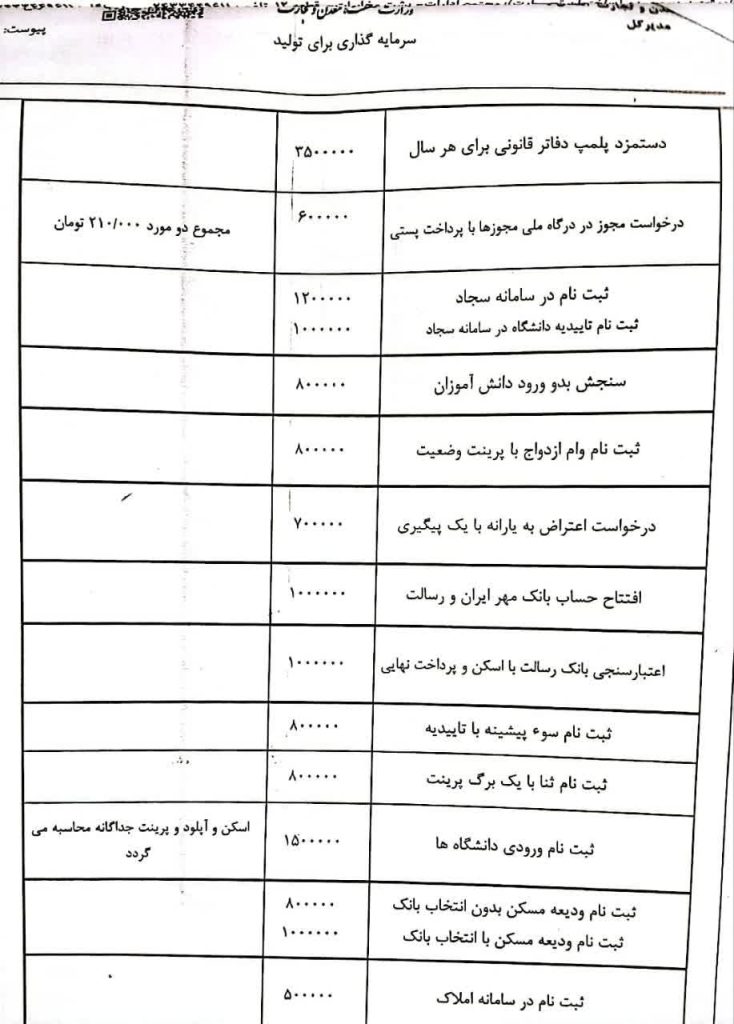 مدیرکل
وزارت صنعت، معدن و تجارت
سرمایه گذاری برای تولید
پیوست:
دستمزد پلمپ دفاتر قانونی برای هر سال
۳۵۰۰۰۰۰
درخواست مجوز در درگاه ملی مجوزها با پرداخت پستی
۶۰۰۰۰۰
مجموع دو مورد ۲۱۰/۰۰۰ تومان
ثبت نام در سامانه سجاد
۱۲۰۰۰۰۰
ثبت نام تاییدیه دانشگاه در سامانه سجاد
۱۰۰۰۰۰۰
سنجش بدو ورود دانش آموزان
۸۰۰۰۰۰
ثبت نام وام ازدواج با پرینت وضعیت
۸۰۰۰۰۰
درخواست اعتراض به یارانه با یک پیگیری
۷۰۰۰۰۰
افتتاح حساب بانک مهر ایران و رسالت
۱۰۰۰۰۰۰
اعتبارسنجی بانک رسالت با اسکن و پرداخت نهایی
۱۰۰۰۰۰۰
ثبت نام سوء پیشینه با تاییدیه
۸۰۰۰۰۰
ثبت نام ثنا با یک برگ پرینت
۸۰۰۰۰۰
ثبت نام ورودی دانشگاه ها
۱۵۰۰۰۰۰
اسکن و آپلود و پرینت جداگانه محاسبه می
گردد
ثبت نام ودیعه مسکن بدون انتخاب بانک
۸۰۰۰۰۰
ثبت نام ودیعه مسکن با انتخاب بانک
۱۰۰۰۰۰۰
ثبت نام در سامانه املاک
۵۰۰۰۰۰